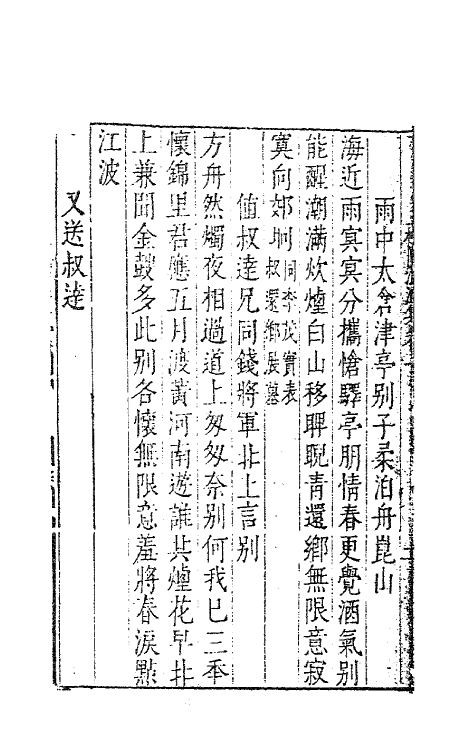 雨中太倉津亭别子柔泊舟崑山
海近雨㝠㝠分攜愴驛亭朋情春更覺酒氣别
能醒潮滿炊煙白山移睥睨青還鄉無限意寂
寞向郊坰同李茂實表叔還鄉展墓
值叔逵兄同錢將軍北上言别
方舟然燭夜相過道上匆匆奈别何我已三年
懷錦里君應五月渡黃河南遊誰共煙花早北
上兼聞金鼓多此别各懷無限意羞將春淚點
江波
又送叔逵